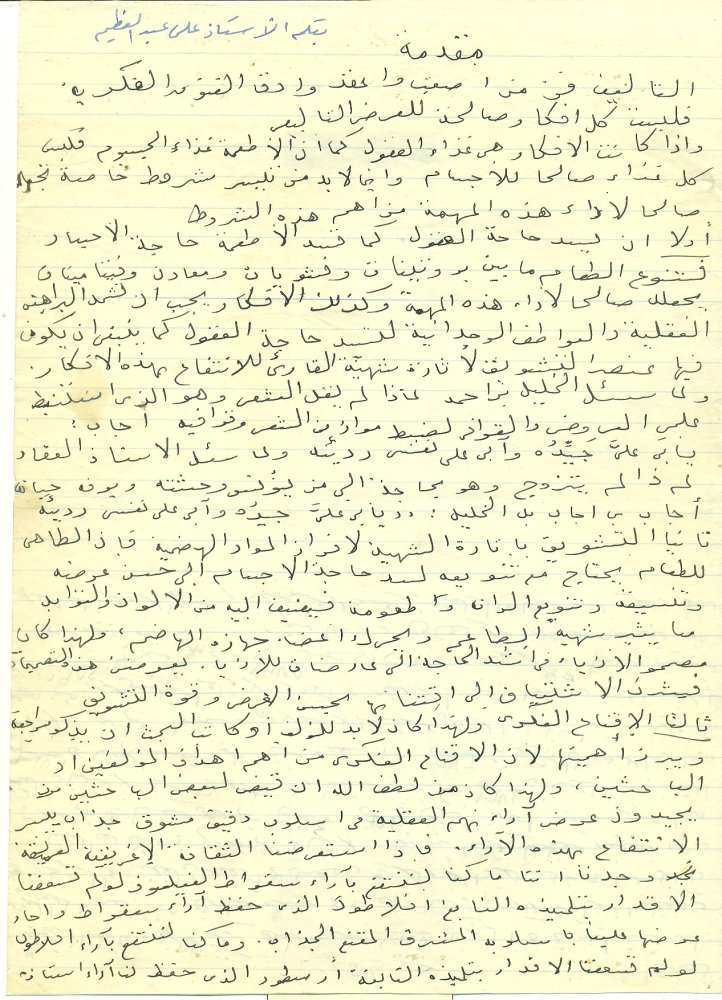 بقلم الاستاذ على عبد العظيم
مقدمة
التأليف فن من أصعب وأعقد وأدق الفنون الفكرية
فليست كل الأفكار صالحة للعرض التأليفى
وإذا كانت الأفكار هى غذاء العقول كما أن الأطعمة غذاء الجسوم فليس
كل غذاء صالحا للأجسام وإنما لابد من تيسر شروط خاصة تجعله
صالحا لأداء هذه المهمة من أهم هذه الشروط
أولا ان يسد حاجة العقول كما تسد الأطعمة حاجة الأجسام
فتتنوع الطعام ما بين بروتينات ونشويات ومعادن وفيتامينات
يجعلك صالحا لأداء هذه المهمة وكذلك الأفكار يجب ان تشمل البراهين
العقلية والعواطف الوجدانية لتسد حاجة العقول كما ينبغى ان يكون
فيها عنصر التشويق لأثارة شهية القارئ للانتفاع بهذه الأفكار.
ولما سئل الخليل بن احمد لماذا لم يقل الشعر وهو الذى استنبط
علمى العروض والقوافى لضبط موازين الشعر وقوافيه أجاب:
يأبى علىَّ جَيِّدُه وآبى على نفسى رديئه ولما سئل الاستاذ العقاد
لم ذا لم يتزوج وهو بحاجة الى من يؤنس وحشته ويرفه حياته
أجاب بما أجاب به الخليل: يأبى علىَّ جيده وآبى على نفسى رديئه
ثانيا التشويق بإثارة الشهية لافراز المواد الهضمية فإذا الطاهى
للطعام يحتاج مع تنويعه لسد حاجة الأجسام الى حسن عرضه
وتنسيقه وتنويع الوانه وطعومه فيضيف اليه من الألوان والتوابل
ما يثير شهية الطاعم ويحرك أعضاء جهازه الهاضم، ولهذا كان
مصممو الأزياء فى أشد الحاجة الى عارضات للأزياء يعرضن هذه التصميمات
فيثرن الاشتياق الى اقتنائها بحسن العرض وقوة التشويق
ثالثا الإقناع الفكرى ولهذا كان لابد للمؤلف أو كاتب البحث ان يذكر مراجعه
ويبرز أهميتها لأن الاقناع الفكرى من أهم أهداف المؤلفين او
الباحثين، ولهذا كان من لطف الله ان قيض لبعض الباحثين من
يجيدون عرض آرائهم العقلية فى اسلوب دقيق مشوق جذاب ييسر
الانتفاع بهذه الآراء. فإذا استعرضنا الثقافة الإغريقية العريقة
وجدنا اننا ما كنا لننتفع بآراء سقراط الفيلسوف لولم تسعفنا
الأقدار بتلميذه النابغ افلاطون الذى حفظ آراء سقراط وأجاد
عرضها علينا بأسلوبه المشرق المقنع الجذاب. وما كنا لننتفع بآراء افلاطون
لولم تسعفنا الاقدار بتلميذه النابغة أرسطو الذى حفظ لنا آراء استاذه